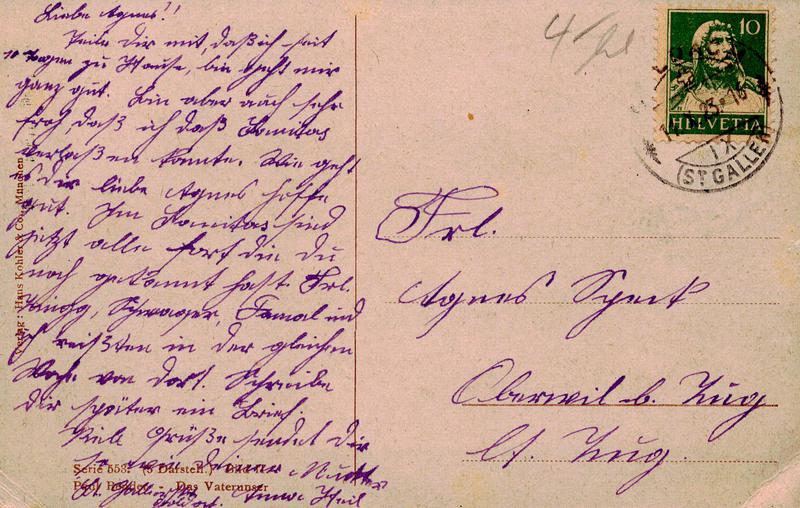 Liebe Agnes!!
Teile Dir mit, daß ich seit
10 Tagen zu Hause, bin geht mir
ganz gut. Bin aber auch sehr
froh, daß ich daß Sanitas
verlaßen konnte. Wie geht
es Dir liebe Agnes hoffe
gut. Im Sanitas sind
jetzt alle fort die Du
noch gekannt hast. Frl.
Schwager, und
ich reißten in der gleichen
Woche von dort. Schreibe
Dir später ein Brief.
Viele Grüße sendet Dir
Mutter
Anna
Serie 553. (3 Darstell.)
- Das Vaterunser
Verlag: Hans Kohler & Co., München
4
10
HELVETIA
(ST. GALLEN)
Frl.
Agnes Speck
Oberwil b. Zug
Kt. Zug.